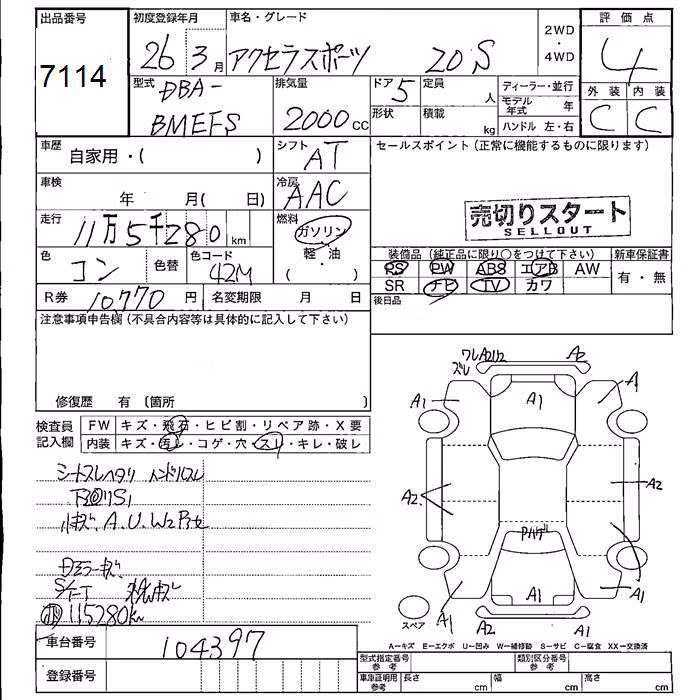 出品番号
7114
初度登録年月
26 3月
車名・グレード
アクセラスポーツ 20S
2WD
・
4WD
評価点
4
外装 内装
C C
型式
DBA-
BMEFS
排気量
2000cc
ドア 5
形状
定員 人
積載 kg
ディーラー・並行
モデル年式 年
ハンドル 左・右
車歴
自家用・( )
シフト
AT
セールスポイント(正常に機能するものに限ります)
車検 年 月( 日)
冷房
AAC
売切りスタート
SELLOUT
走行
11万5千280km
燃料
ガソリン
軽・油
( ・ )
色
コン
色替
色コード
42M
装備品(純正品に限り○をつけて下さい)
PS PW ABS エアB AW
SR ナビ TV カワ
新車保証書
有・無
R券 10770円
名変期限 月 日
後日品
注意事項申告欄(不具合内容等は具体的に記入して下さい)
修復歴 有 〔箇所 〕
検査員
記入欄
FW キズ・飛石・ヒビ割・リペア跡・X要
内装 キズ・汚レ・コゲ・穴・スレ・キレ・破レ
シートスレヘタリ ハンドルスレ
小キズ、A.U.W2
Dミラーキズ
115280km
ワレA2U2
ズレ
A2
A1
A1
A
A2
A2
Pハゲ
A1
A1
A1
A2
A1
スペア
A-キズ E-エクボ U-凹み W-補修跡 S-サビ C-腐食 XX-交換済
車台番号 104397
登録番号
型式指定番号
参考
類別区分番号
参考
車庫証明用
参考
長さ cm
幅 cm
高さ cm